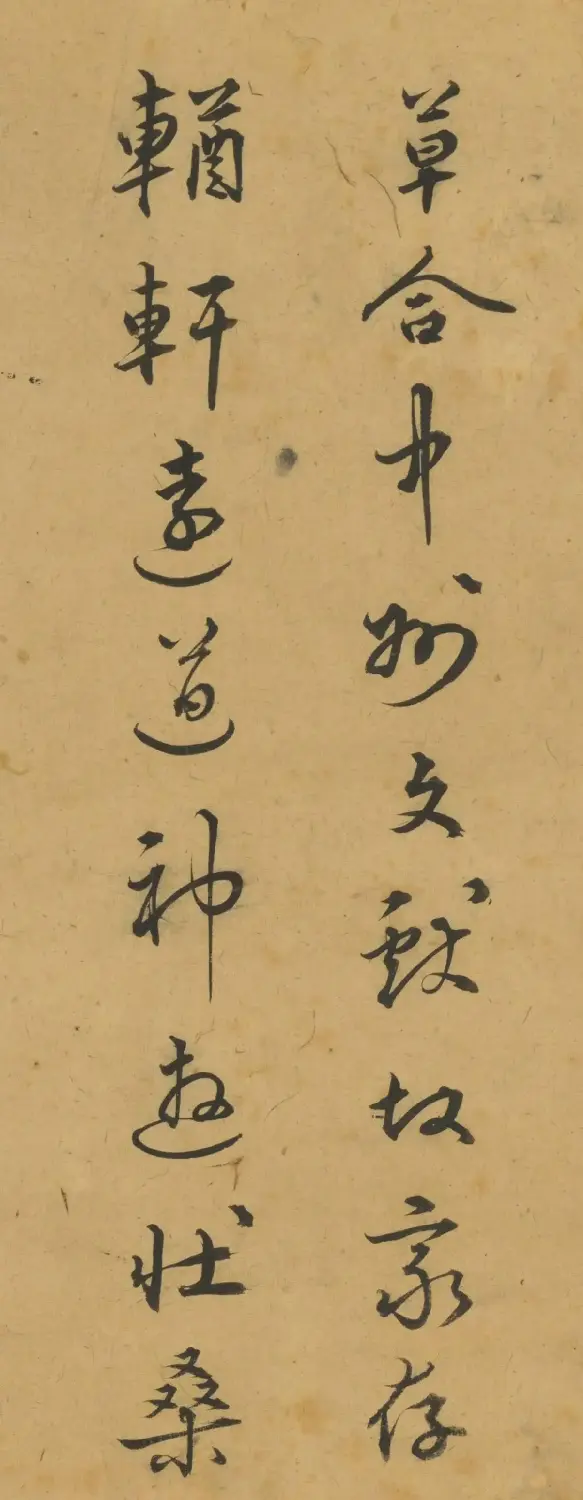 草合中州文獻故家存
輶軒遠道神遊壯桑